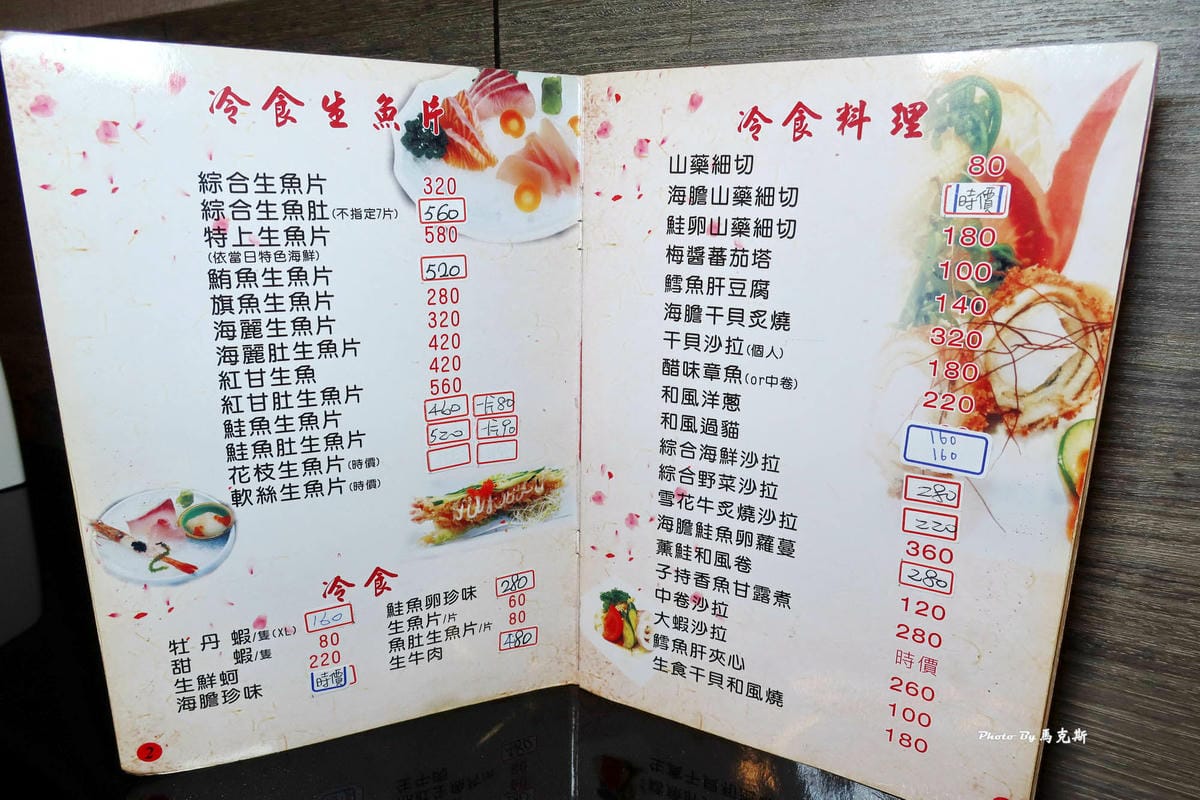 冷食生魚片
綜合生魚片 320
綜合生魚肚(不指定7片) 560
特上生魚片 580
(依當日特色海鮮)
鮪魚生魚片 520
旗魚生魚片 280
海麗生魚片 320
海麗肚生魚片 420
紅甘生魚 420
紅甘肚生魚片 560
鮭魚生魚片 460 80
鮭魚肚生魚片 520 90
花枝生魚片(時價)
軟絲生魚片(時價)
冷食
牡丹蝦/隻(XL) 160
甜蝦/隻 80
生鮮蚵 220
海膽珍味 時價
鮭魚卵珍味 280
生魚片/片 60
魚肚生魚片/片 80
生牛肉 480
2
冷食料理
山藥細切 80
海膽山藥細切 時價
鮭卵山藥細切 180
梅醬蕃茄塔 100
鱈魚肝豆腐 140
海膽干貝炙燒 320
干貝沙拉(個人) 180
醋味章魚(or中卷) 220
和風洋蔥 160
和風過貓 160
綜合海鮮沙拉 280
綜合野菜沙拉 220
雪花牛炙燒沙拉 360
海膽鮭魚卵蘿蔓 280
薰鮭和風卷 120
子持香魚甘露煮 280
中卷沙拉 時價
大蝦沙拉 260
鱈魚肝夾心 100
生食干貝和風燒 180
Photo By 馬克斯